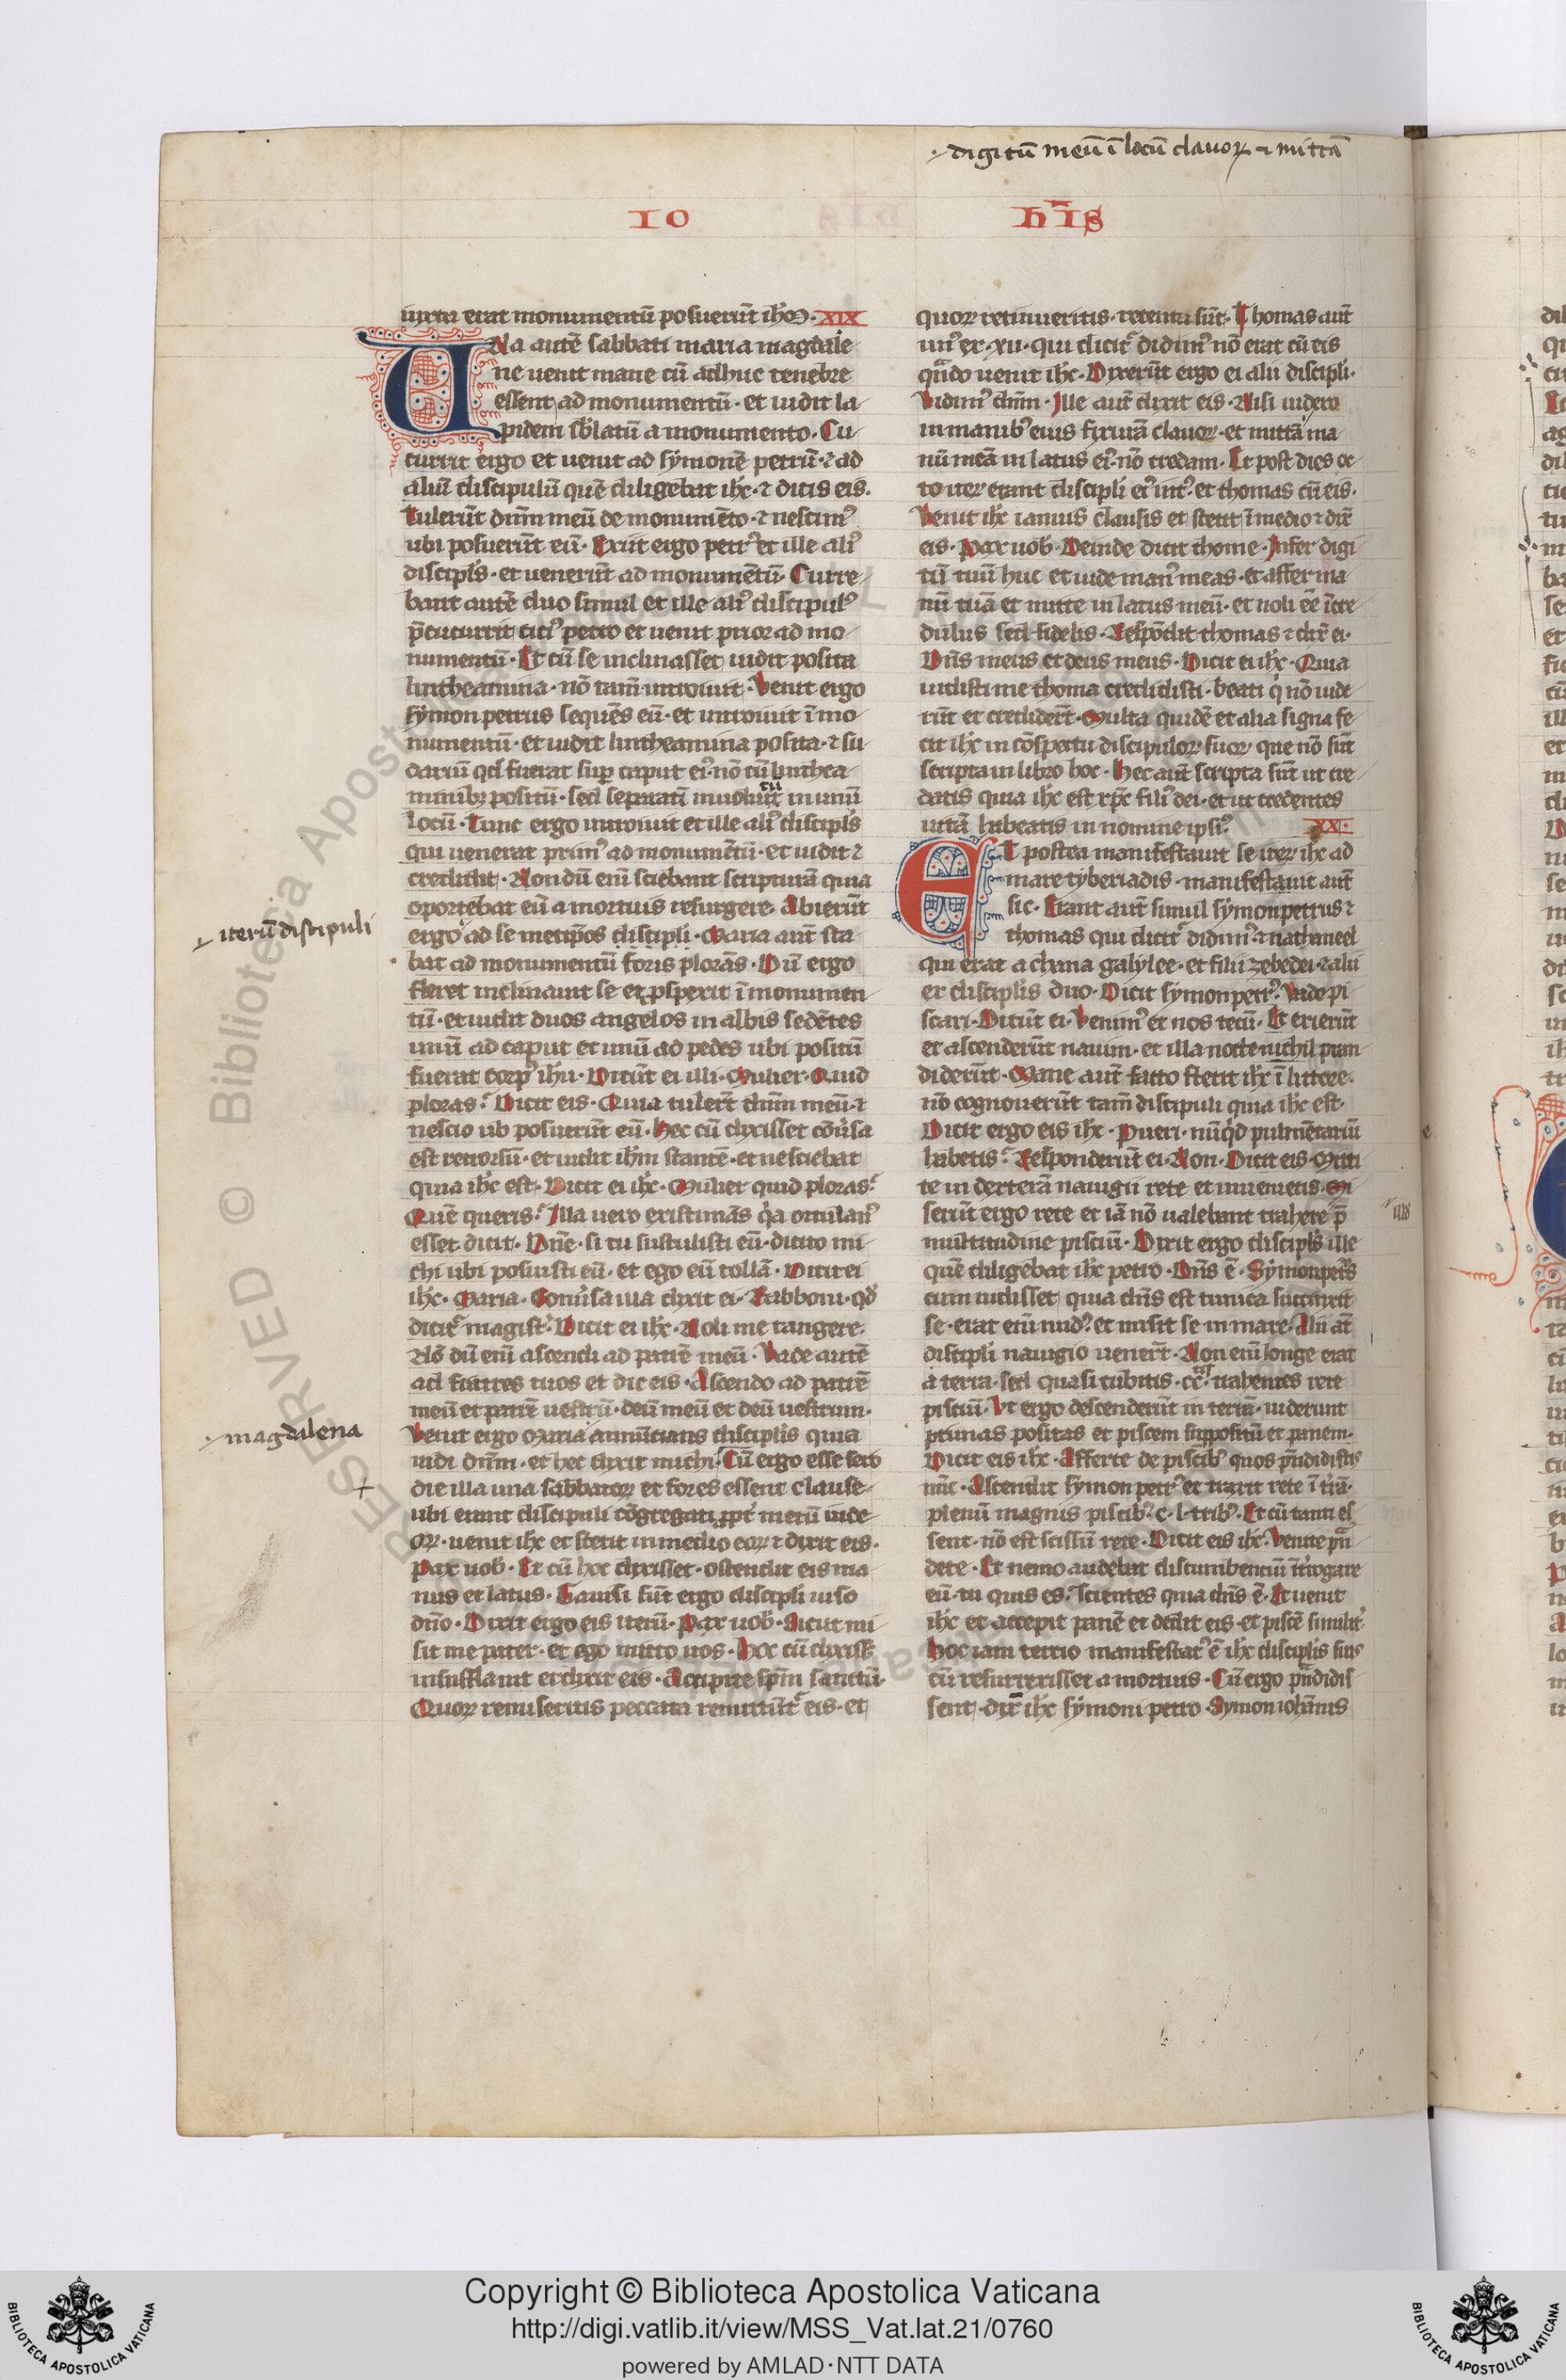 digitū meū ī locū clauoꝝ ⁊ mittā
IO
hīs
iuxta erat monumentū posuerūt ihm. XIX
Una autē sabbati maria magdale
ne uenit mane cū adhuc tenebre
essent ad monumentū. et uidit la
pidem sblatū a monumento. Cu
currit ergo et uenit ad symonē petrū. ⁊ ad
aliū discipulū quē diligebat ihc. ⁊ dicis eis.
Tulerūt dnm meū de monumēto. ⁊ nescimꝰ
ubi posuerūt eū. Exiit ergo petrꝰ et ille aliꝰ
discipls. et venerūt ad monumētū. Curre
bant autē duo simul et ille aliꝰ discipulꝰ
p̄cucurrit citiꝰ petro et uenit prior ad mo
numentū. Et cū se inclinasset uidit posita
lintheamina. nō tam̄ introiuit. Venit ergo
symon petrus sequēs eū. et introiuit ī mo
numentū. et uidit lintheamina posita. ⁊ su
dariū qd fuerat sup caput eiꝰ. nō cū linthea
minibꝫ positū. sed separatī inuolutū in unū
locū. Tunc ergo introiuit et ille aliꝰ discipls
qui uenerat primꝰ ad monumētū. et uidit ⁊
credidit. Nondū eni sciebant scripturā quia
oportebat eū a mortuis resurgere. Abierūt
iterū discipuli
ergo ad se metipsos discipli. Maria aut sta
bat ad monumentū foris plorās. Dū ergo
fleret inclinauit se et pspexit ī monumen
tū. et uidit duos angelos in albis sedētes
unū ad caput et unū ad pedes ubi positū
fuerat corpꝰ ihu. Dicūt ei illi. Mulier. Quid
ploras? Dicit eis. Quia tulert dnm meū. ⁊
nescio ub posuerūt eū. Hec cū dixisset cōusa
est retrorsū. et uidit ihm stantē. et nesciebat
quia ihc est. Dicit ei ihc. Mulier quid ploras?
Quē queris? Illa uero existimās qa ortulanꝰ
esset. dicit. Dn̄e. si tu sustulisti eū. dicito mi
chi ubi posuisti eū. et ego eū tollā. Dicit ei
ihc. Maria. Conusa illa dixit ei. Rabboni. qd
dicit magist. Dicit ei ihc. Noli me tangere.
Nō dū eni ascendi ad patrē meū. Vade autē
ad fratres meos et dic eis. Ascendo ad patrē
meū et patrē uestrū. deū meū et deū uestrum.
magdalena
Venit ergo Maria annūcians disciplis quia
uidi dnm. et hec dixit michi. Cū ergo esse sero
die illa una sabbatoꝝ et fores essent clause
ubi erant discipuli cōgregati ppt metū iude
oꝝ. uenit ihc et stetit in medio eoꝝ ⁊ dixit eis.
Pax uob. Et cū hoc dixisset. ostendit eis ma
nus et latus. Gauisi sūt ergo discipli uiso
dn̄o. Dixit ergo eis iterū. Pax uob. Sicut mi
sit me pater. et ego mitto uos. Hoc cū dixiss
insufflauit et dixit eis. Accipite spm sanctū.
Quoꝝ remiseritis peccata remittūt eis. et
quoꝝ retinueritis. retenta sūt. Thomas aut
unꝰ ex xii. qui dicit didimꝰ nō erat cū eis
qn̄do uenit ihc. Dixerūt ergo ei alii discipli.
Vidimꝰ dnm. Ille aut dixit eis. Nisi uidero
in manibꝰ eius fixurā clauoꝝ. et mittā ma
nū meā in latus eiꝰ. nō credam. Et post dies oc
to iterꝝ erant discipli eiꝰ intꝰ. et thomas cū eis.
Venit ihc ianuis clausis et stetit ī medio ⁊ dix
eis. Pax uob. Deinde dicit thome. Infer digi
tū tuū huc et uide manꝰ meas. et affer ma
nū tuā et mitte in latus meū. et noli ēe īcre
dulus sed fidelis. Respōdit thomas ⁊ dix ei.
Dn̄s meus et deus meus. Dicit ei ihc. Quia
uidisti me thoma credidisti. beati q nō uide
rūt et credidert. Multa quidē et alia signa fe
cit ihc in cōspectu discipuloꝝ suoꝝ que nō sūt
scripta in libro hoc. Hec aut scripta sūt ut cre
datis quia ihc est xpc filiꝰ dei. et ut credentes
uitā habeatis in nomine ipsiꝰ. XX.
Et postea manifestauit se iterꝝ ihc ad
mare tyberiadis. manifestauit aut
sic. Erant aut simul symon petrus ⁊
thomas qui dicit didimꝰ. ⁊ nathaneel
qui erat a chana galylee. et filii zebedei. ⁊ alii
ex disciplis duo. Dicit symon petrꝰ. Vado pi
scari. Dicūt ei. Venimꝰ et nos tecū. Et exierūt
et ascenderūt nauim. et illa nocte nichil pren
diderūt. Mane aut facto stetit ihc ī littore.
nō cognouerūt tam̄ discipuli quia ihc est.
Dicit ergo eis ihc. Pueri. nūqd pulmētariū
habetis? Responderūt ei. Non. Dicit eis. Mitti
te in dexterā nauigii rete et inuenietis. Mi
serūt ergo rete et iā nō ualebant trahere p̄
multitudine pisciū. Dixit ergo discipls ille
quē diligebat ihc petro. Dn̄s ē. Symon petrs
cum uidisset quia dn̄s est tunica succinxit
se. erat eni nudꝰ. et misit se in mare. Alii at
discipli nauigio uenert. Non eni longe erat
a terra. sed quasi cubitis. cc. trahentes rete
pisciū. Vt ergo descenderūt in terrā. uiderunt
prunas positas et piscem suppositū et panem.
Dicit eis ihc. Afferte de piscibꝰ quos prn̄didistis
nūc. Ascendit symon petrꝰ et traxit rete ī trā.
plenū magnis piscibꝰ. c. l. tribꝰ. Et cū tanti es
sent. nō est scissū rete. Dicit eis ihc. Venite prn̄
dete. Et nemo audebat discumbenciū ītrogare
eū. tu quis es. Scientes quia dn̄s ē. Et uenit
ihc et accepit panē et dedit eis. et piscē similit
Hoc iam tercio manifestatꝰ ē ihc disciplis suis
cū resurrexisset a mortuis. Cū ergo prn̄didis
sent. dix ihc symoni petro. Symon iohannis
Copyright © Biblioteca Apostolica Vaticana
http://digi.vatlib.it/view/MSS_Vat.lat.21/0760
powered by AMLAD·NTT DATA
BIBLIOTECA APOSTOLICA VATICANA
BIBLIOTECA APOSTOLICA VATICANA